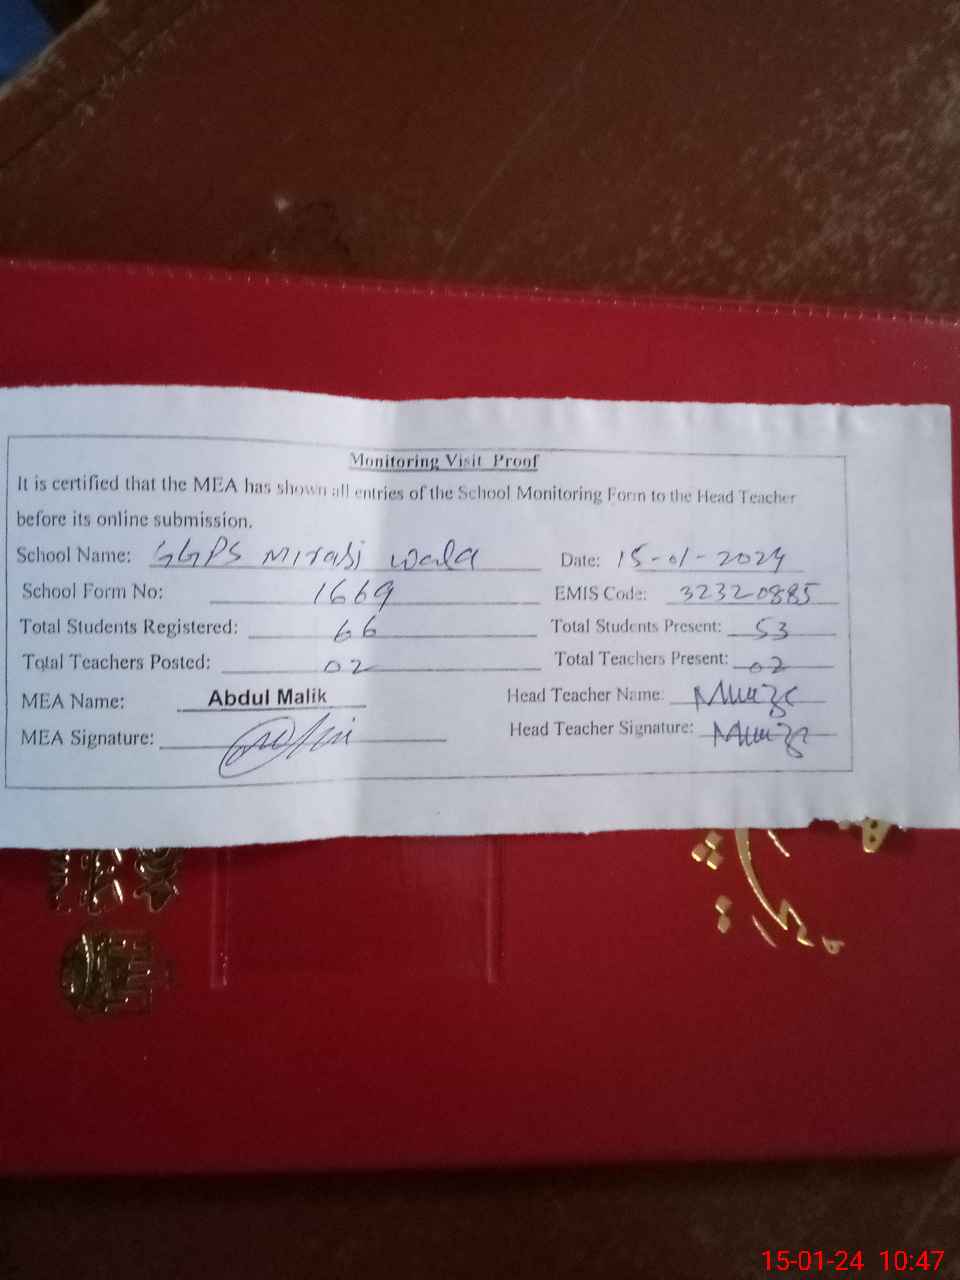 Monitoring Visit Proof
It is certified that the MEA has shown all entries of the School Monitoring Form to the Head Teacher
before its online submission.
School Name: GGPS Mirabi Wala Date: 15-01-2024
School Form No: 1669 EMIS Code: 32320885
Total Students Registered: 66 Total Students Present: 53
Total Teachers Posted: 02 Total Teachers Present: 02
MEA Name: Abdul Malik Head Teacher Name:
MEA Signature: Head Teacher Signature:
15-01-24 10:47